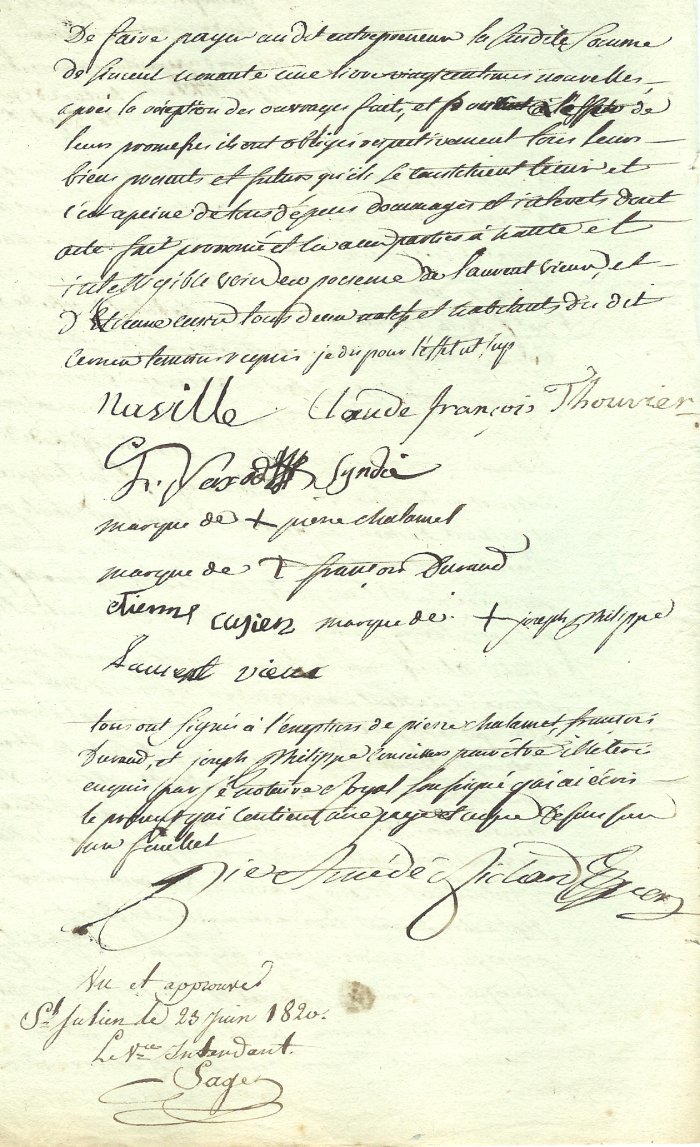 De faire payer audit entrepreneur la susdite somme
de sincent nonante une livre vingt centimes nouvelles
après la réception des ouvrages fait, et pour de
leurs promesses ils ont obligés respectivement tous leurs
biens presents et futurs qu'ils se constituent tenir et
c'est a peine de tous dépens dommages et interets dont
acte fait prononcé et lu aux parties à haute et
intelligible voix en presence de Laurent vieux, et
d'Etienne tous deux natifs et habitants du dit
Cernex temoins requis
naville Claude françois Thouvier
Syndic
marque de + pierre chalamel
marque de françois Durand
etienne cusien marque de + joseph philippe
Laurent vieux
tous ont signés à l'exeption de pierre chalamet, françois
Durand, et joseph philippe pour être illeteré
enquis par je notaire Royal soussigné qui ai écris
le present qui contient une page et demi sur
un feuillet
Amédé
Vu et approuvé
St Julien le 23 Juin 1820.
Le Vice Intendant.
Sage